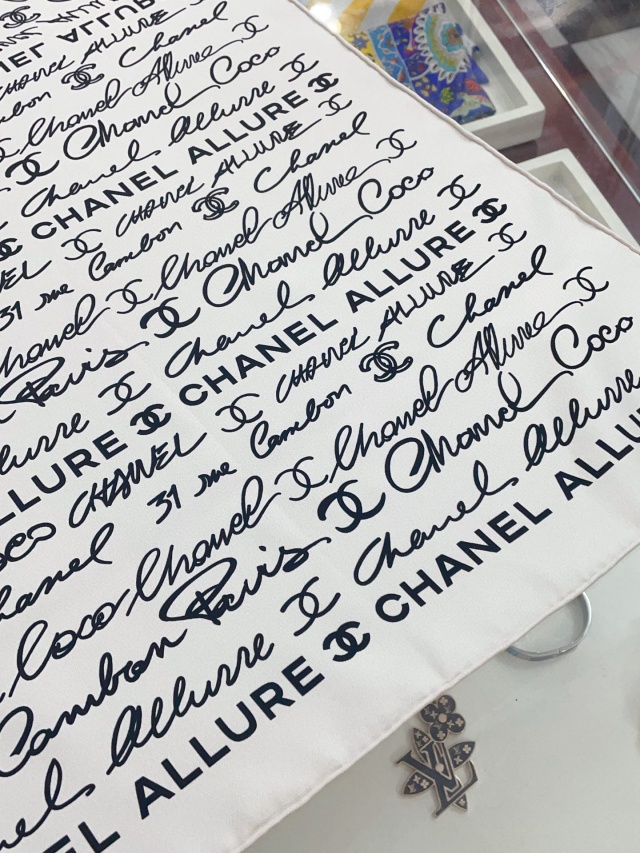 CHANEL ALLURE
Cambon Chanel
Chanel Allure
Chanel Coco
Chanel Allure
CHANEL ALLURE
NEL CHANEL ALLURE
31 rue Cambon Chanel
Chanel Chanel Allure
Paris Chanel Coco
llure Chanel Allure
LLURE CHANEL ALLURE
oco CHANEL CHANEL ALLURE
hanel 31 rue Cambon Chanel
Coco Chanel Chanel Allure
Cambon Paris Chanel Coco
nel Allure Chanel Allure
EL ALLURE CHANEL ALLU
LV